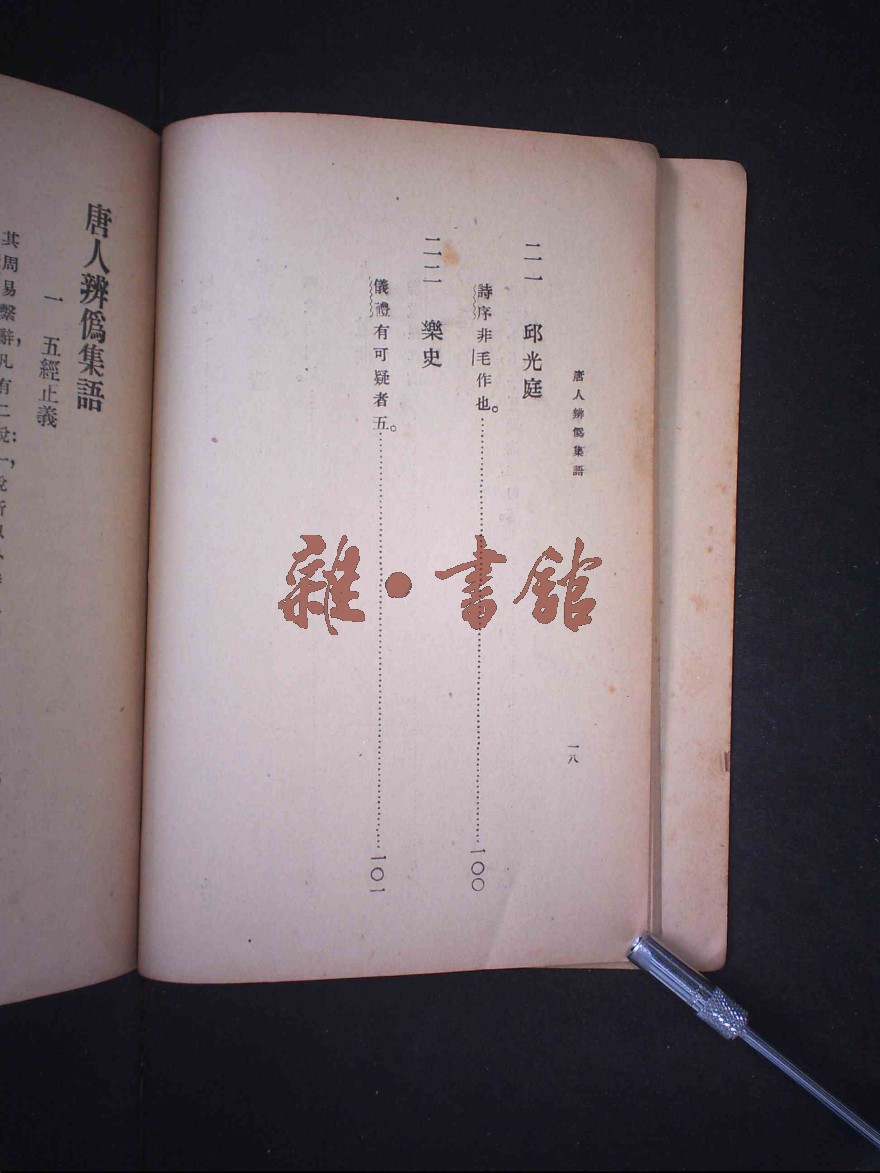 唐人辨僞集語
一八
二一　邱光庭
詩序非毛作也。……一〇〇
二二　樂史
儀禮有可疑者五。……一〇一
雜·書館
唐人辨僞集語
一　五經正義
其周易繫辭，凡有二說：一說所